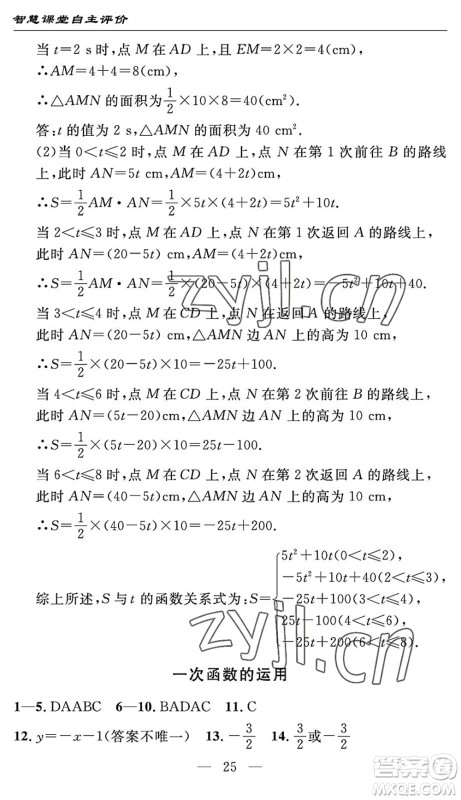 智慧课堂自主评价
当 t=2 s 时,点 M 在 AD 上,且 EM=2×2=4(cm),
∴AM=4+4=8(cm),
∴△AMN 的面积为1/2×10×8=40(cm²).
答:t 的值为 2 s,△AMN 的面积为 40 cm².
(2)当 0<t≤2 时,点 M 在 AD 上,点 N 在第 1 次前往 B 的路线
上,此时 AN=5t cm,AM=(4+2t)cm,
∴S=1/2AM·AN=1/2×5t×(4+2t)=5t²+10t.
当 2<t≤3 时,点 M 在 AD 上,点 N 在第 1 次返回 A 的路线上,
此时 AN=(20-5t)cm,AM=(4+2t)cm,
∴S=1/2AM·AN=1/2×(20-5t)×(4+2t)=-5t²+10t+40.
当 3<t≤4 时,点 M 在 CD 上,点 N 在第 1 次返回 A 的路线上,
此时 AN=(20-5t)cm,△AMN 边 AN 上的高为 10 cm,
∴S=1/2×(20-5t)×10=-25t+100.
当 4<t≤6 时,点 M 在 CD 上,点 N 在第 2 次前往 B 的路线上,
此时 AN=(5t-20)cm,△AMN 边 AN 上的高为 10 cm,
∴S=1/2×(5t-20)×10=25t-100.
当 6<t≤8 时,点 M 在 CD 上,点 N 在第 2 次返回 A 的路线上,
此时 AN=(40-5t)cm,△AMN 边 AN 上的高为 10 cm,
∴S=1/2×(40-5t)×10=-25t+200.
综上所述,S 与 t 的函数关系式为:S={5t²+10t(0<t≤2),
-5t²+10t+40(2<t≤3),
-25t+100(3<t≤4),
25t-100(4<t≤6),
-25t+200(6<t≤8).
一次函数的运用
1—5. DAABC 6—10. BADAC 11. C
12. y=-x-1(答案不唯一) 13. -3/2 14. 3/2或-3/2
— 25 —
zyjl.cn
zyjl.cn
答案圈
MXQE.COM